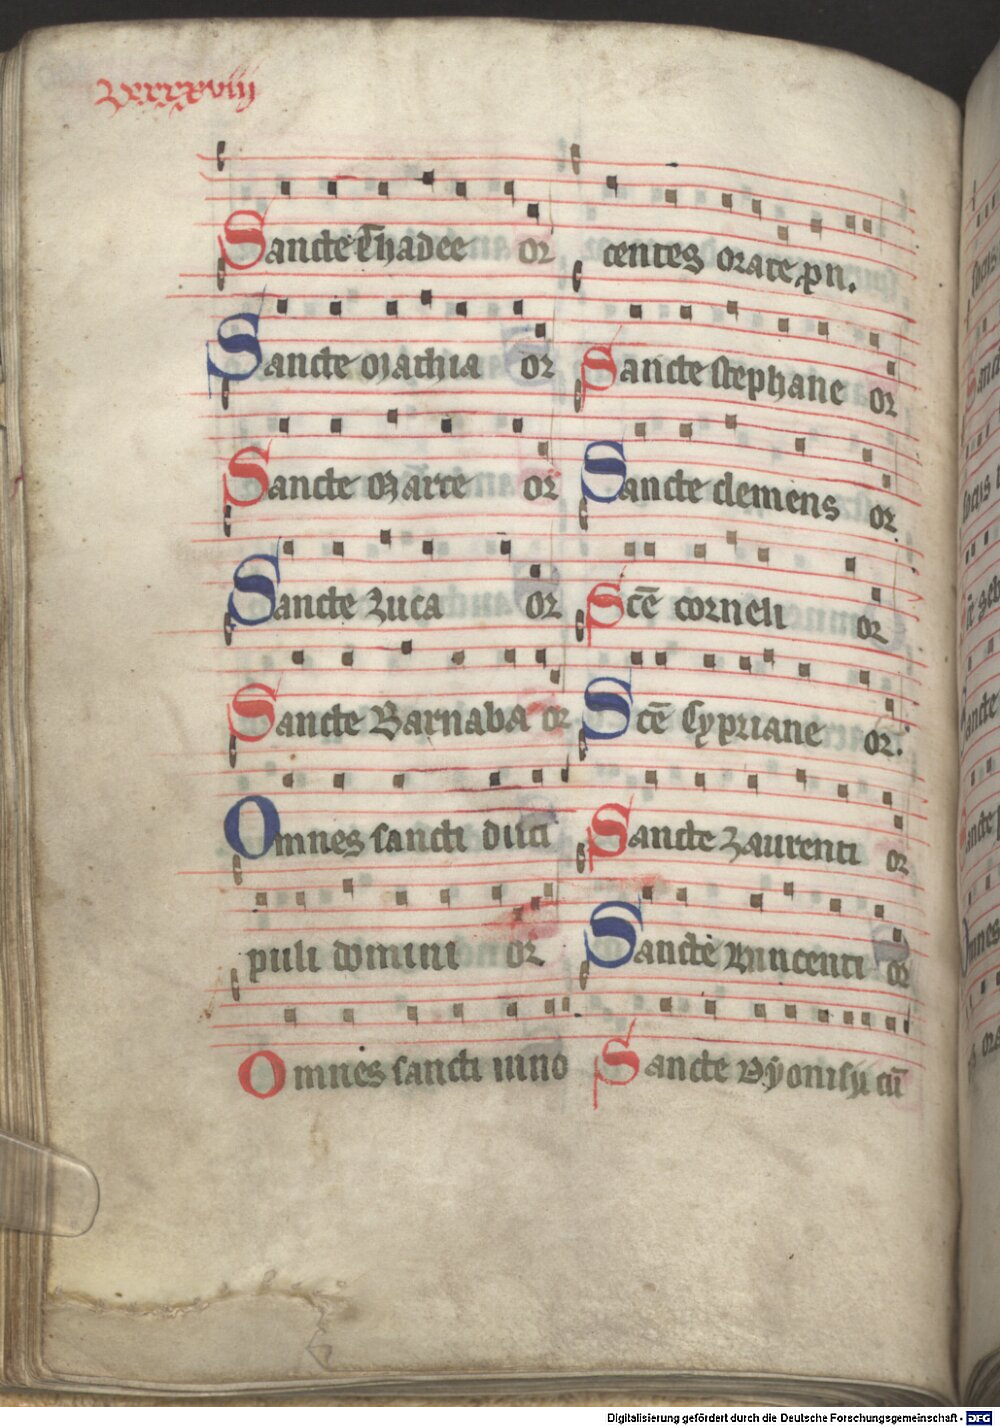 Sancte Thadee or
Sancte Mathia or
Sancte Marce or
Sancte Luca or
Sancte Barnaba or
Omnes sancti disci
puli domini or
Omnes sancti inno
centes orate pn.
Sancte stephane or
Sancte clemens or
Scē corneli or
Scē Cypriane or.
Sancte Laurenti or
Sancte vincenti or
Sancte dyonisii cū
Digitalisierung gefördert durch die Deutsche Forschungsgemeinschaft - DFG